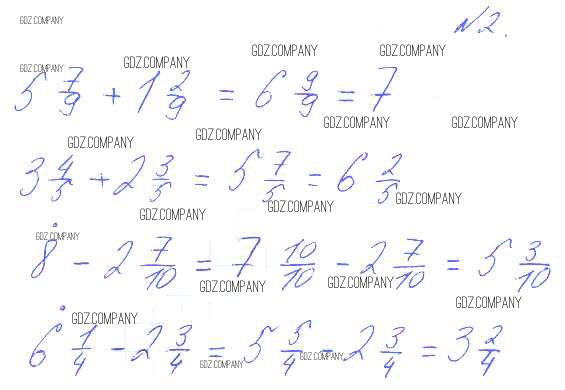 GDZ.COMPANY
№2.
GDZ.COMPANY GDZ.COMPANY
GDZ.COMPANY GDZ.COMPANY
5 7/9 + 1 2/9 = 6 9/9 = 7
GDZ.COMPANY GDZ.COMPANY
GDZ.COMPANY GDZ.COMPANY
3 4/5 + 2 3/5 = 5 7/5 = 6 2/5
GDZ.COMPANY
GDZ.COMPANY GDZ.COMPANY
GDZ.COMPANY
8 - 2 7/10 = 7 10/10 - 2 7/10 = 5 3/10
GDZ.COMPANY GDZ.COMPANY
GDZ.COMPANY
GDZ.COMPANY
6 1/4 - 2 3/4 = 5 5/4 - 2 3/4 = 3 2/4
GDZ.COMPANY GDZ.COMPANY